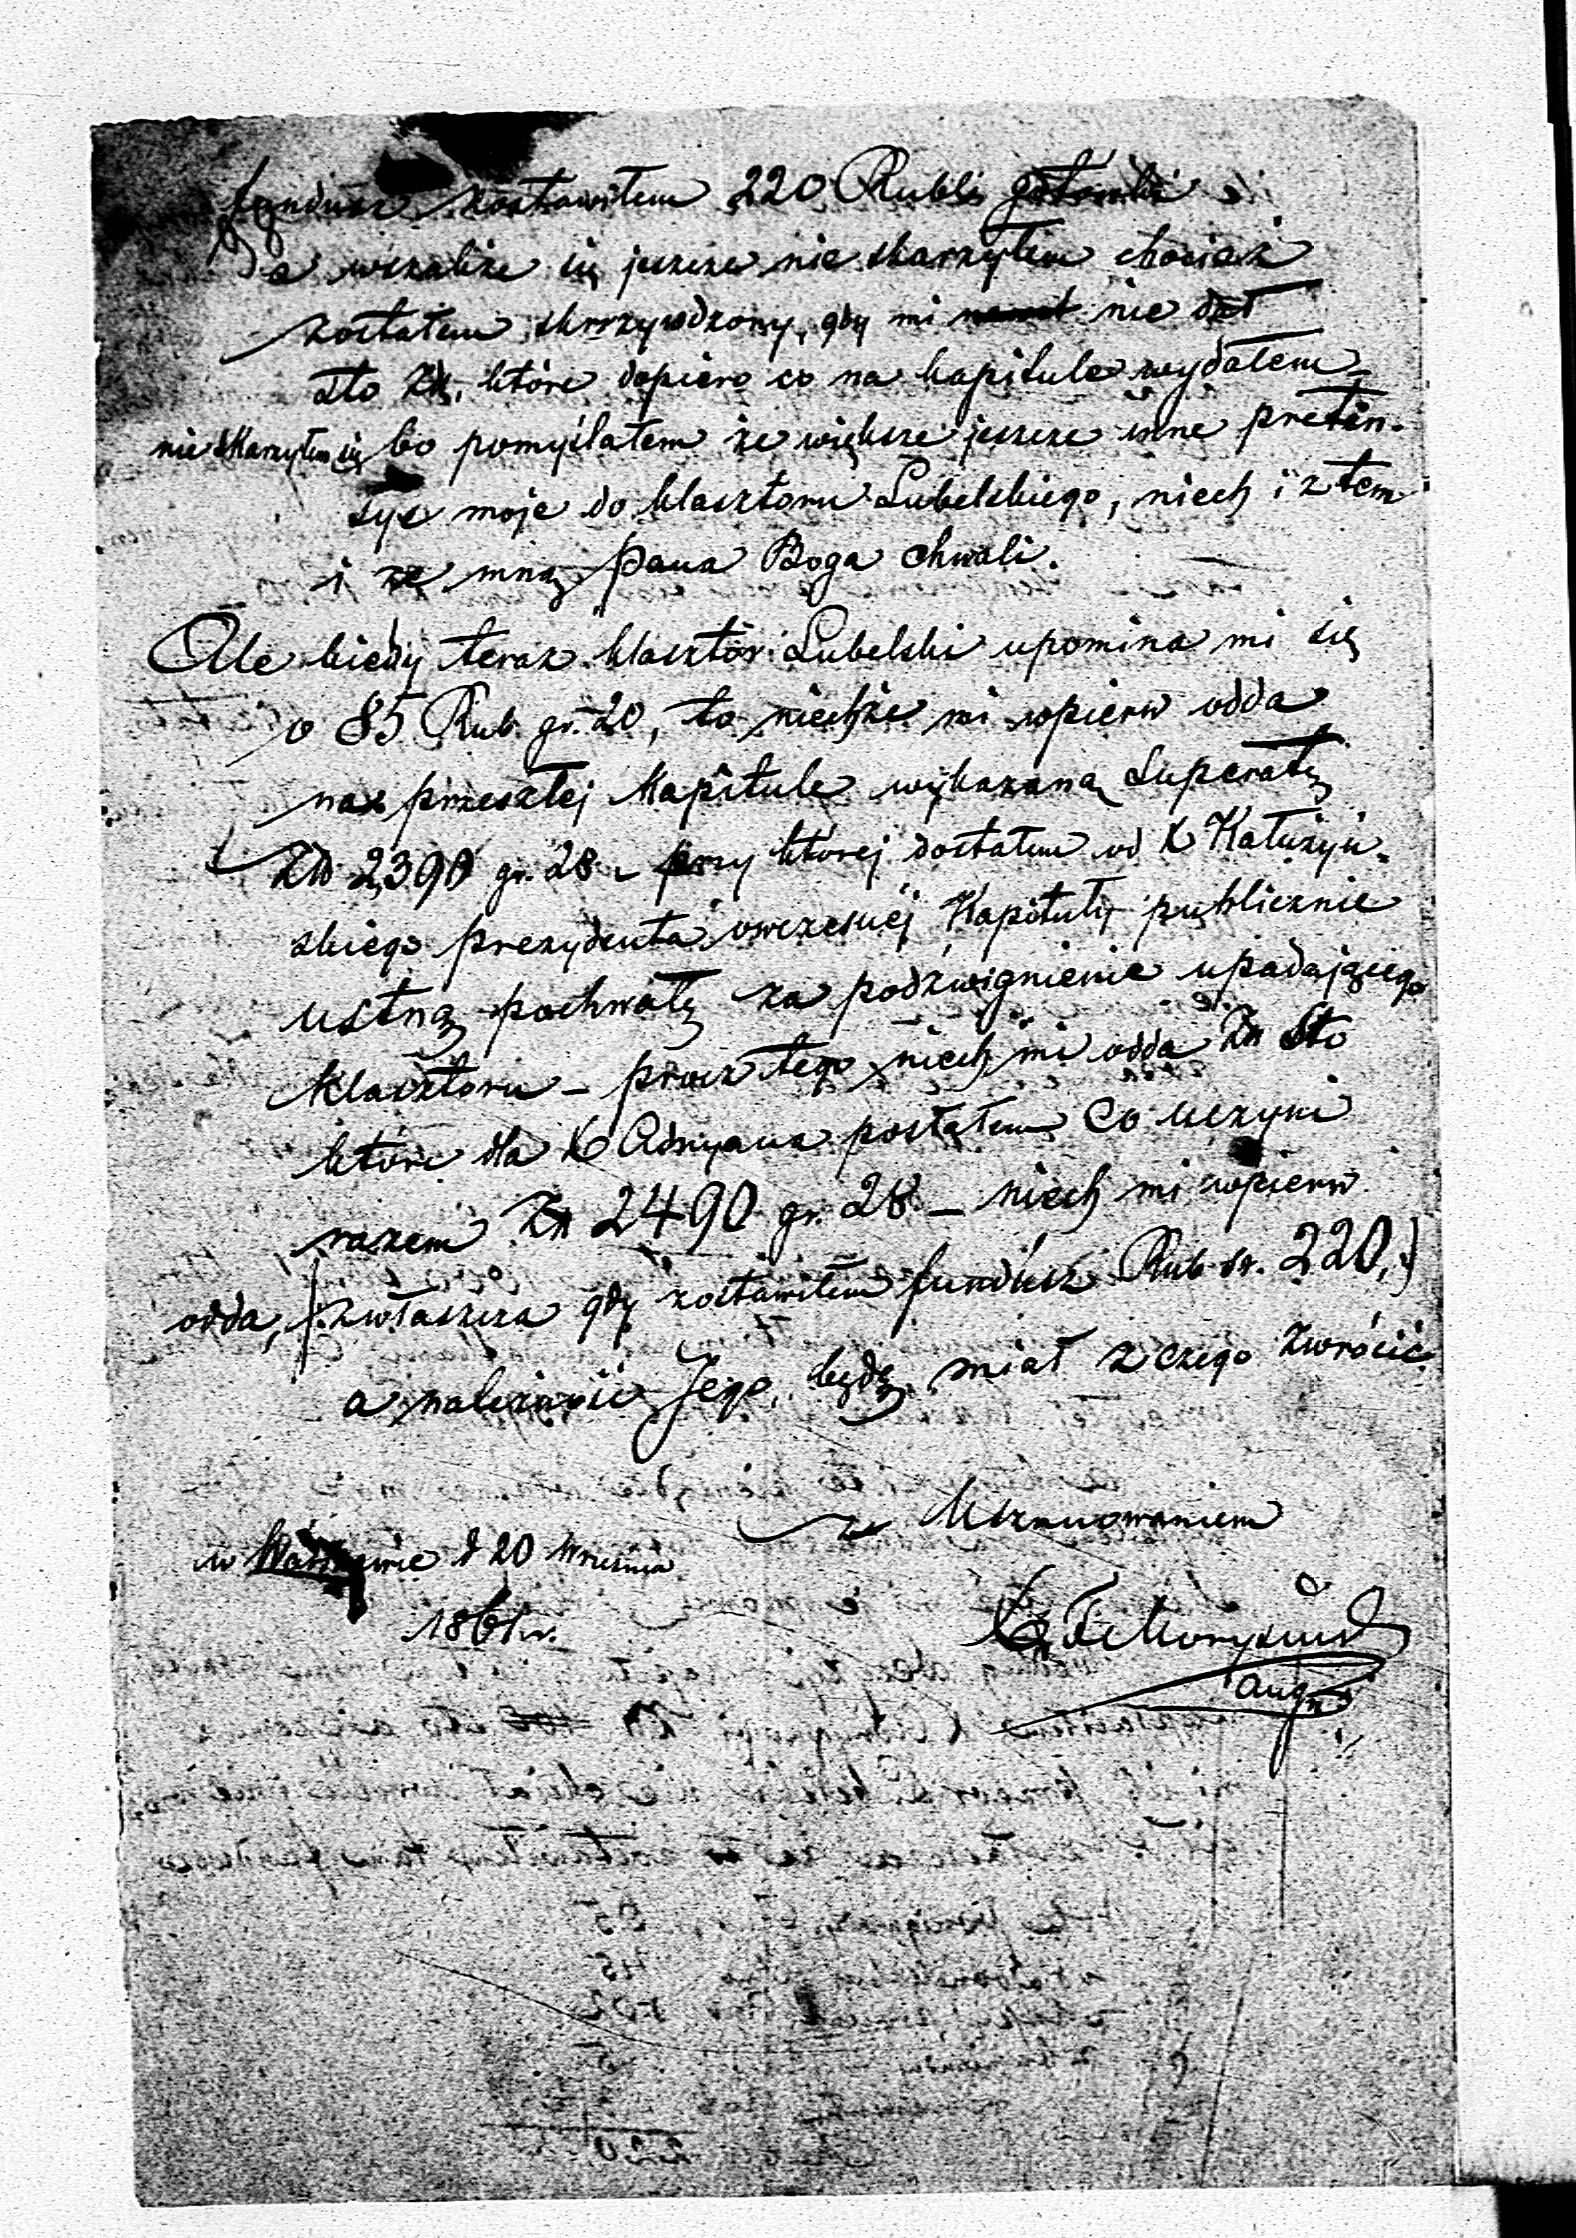 fundusz zostawiłem 220 Rubli
Ja wszakże się jeszcze nie skarzyłem chociaż
zostałem skrzywdzony, gdy mi nawet nie dał
sto Zł. które dopiero co na kapitule wydałem,
nie skarzyłem się bo pomyślałem że większe jeszcze inne preten-
sye moje do klasztoru Lubelskiego, niech i z tem
i ze mną Pana Boga chwali.
Ale kiedy teraz klasztór Lubelski upomina mi się
o 85 Rub. gr. 20, to niechże mi wpierw odda
na przeszłej Kapitule wykazaną Superatę
Zł 2390 gr. 28 – przy której dostałem od X Kałużyń-
skiego prezydenta owczesnéj Kapituły publicznie
ustną pochwałę za podźwignienie upadającego
Klasztoru – procz tego niech mi odda Zł Sto
które dla X Adryana posłałem Co uczyni
razem Zł 2490 gr. 28 – niech mi wpierw
odda, /: zwłaszcza gdy zostawiłem fundusz Rub. sr. 220, :/
a należność Jego, będę miał z czego zwrócić.
z Uszanowaniem
w Warszawie d 20 Września
1861 r.
X.
Aug.